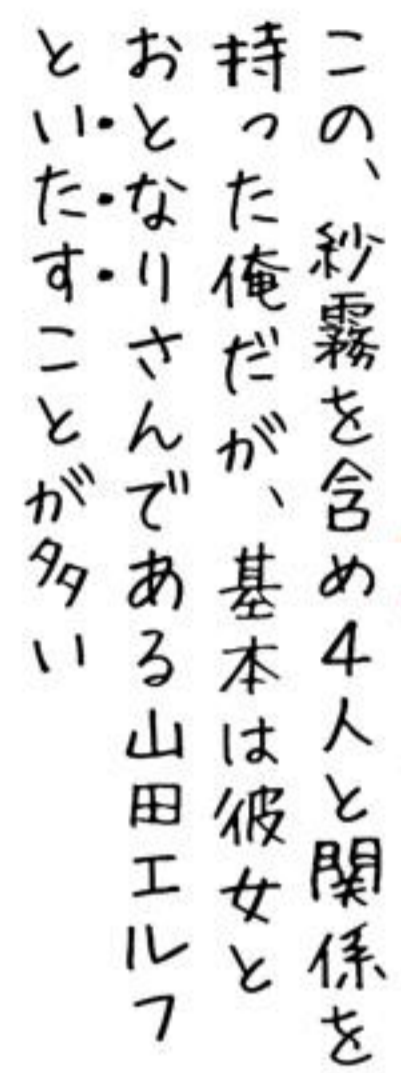 この、紗霧を含め4人と関係を
持った俺だが、基本は彼女と
おとなりさんである山田エルフ
といたすことが多い